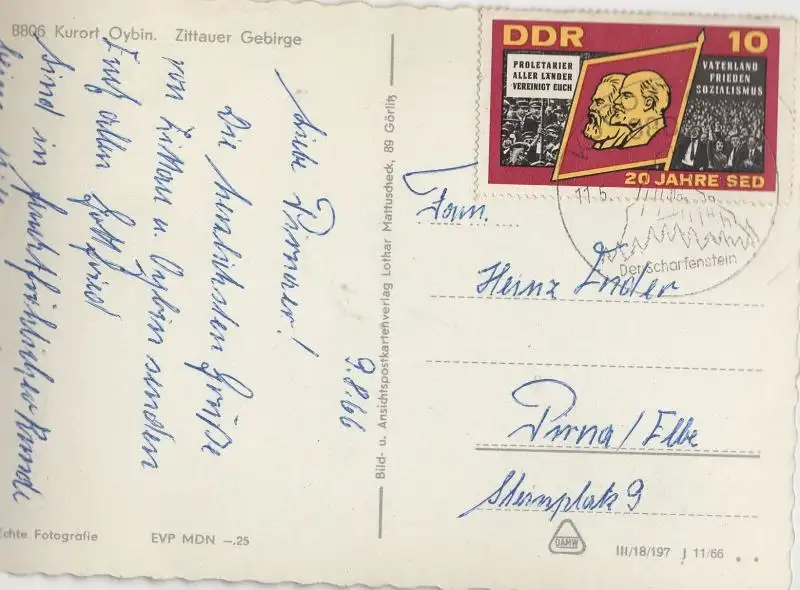 8806 Kurort Oybin. Zittauer Gebirge
9.8.66
Liebe Pirnaer!
Die herzlichsten Grüße
von Zittau u. Oybin senden
Euch allen Gottfried
Sind in
Bild- u. Ansichtspostkartenverlag Lothar Mattuscheck, 89 Görlitz
Echte Fotografie
EVP MDN –.25
DDR 10
PROLETARIER
ALLER LÄNDER
VEREINIGT EUCH
VATERLAND
FRIEDEN
SOZIALISMUS
20 JAHRE SED
Der Scharfenstein
Fam.
Heinz Ender
Pirna/Elbe
Steinplatz 9
DAMW
III/18/197 J 11/66